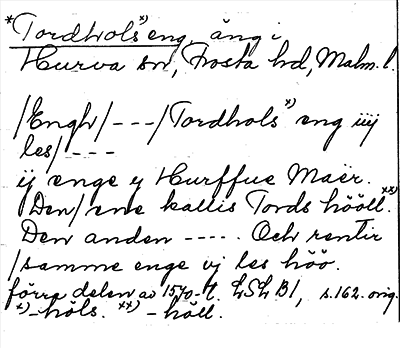 *Tordhols*) eng, äng i
Hurva sn, Frosta hd, Malm. l.
/Engh/ - - - /Tordhols*) eng iiij
les/ - - - -
ij enge y Hurffue Maër.
Den/ene kallis Tords hööll.**)
Den anden - - - - . Och rentir
/samme enge vj les höö.
förra delen av 1570-t. LSLB1, s. 162. orig.
*) -höls. **) -höll.